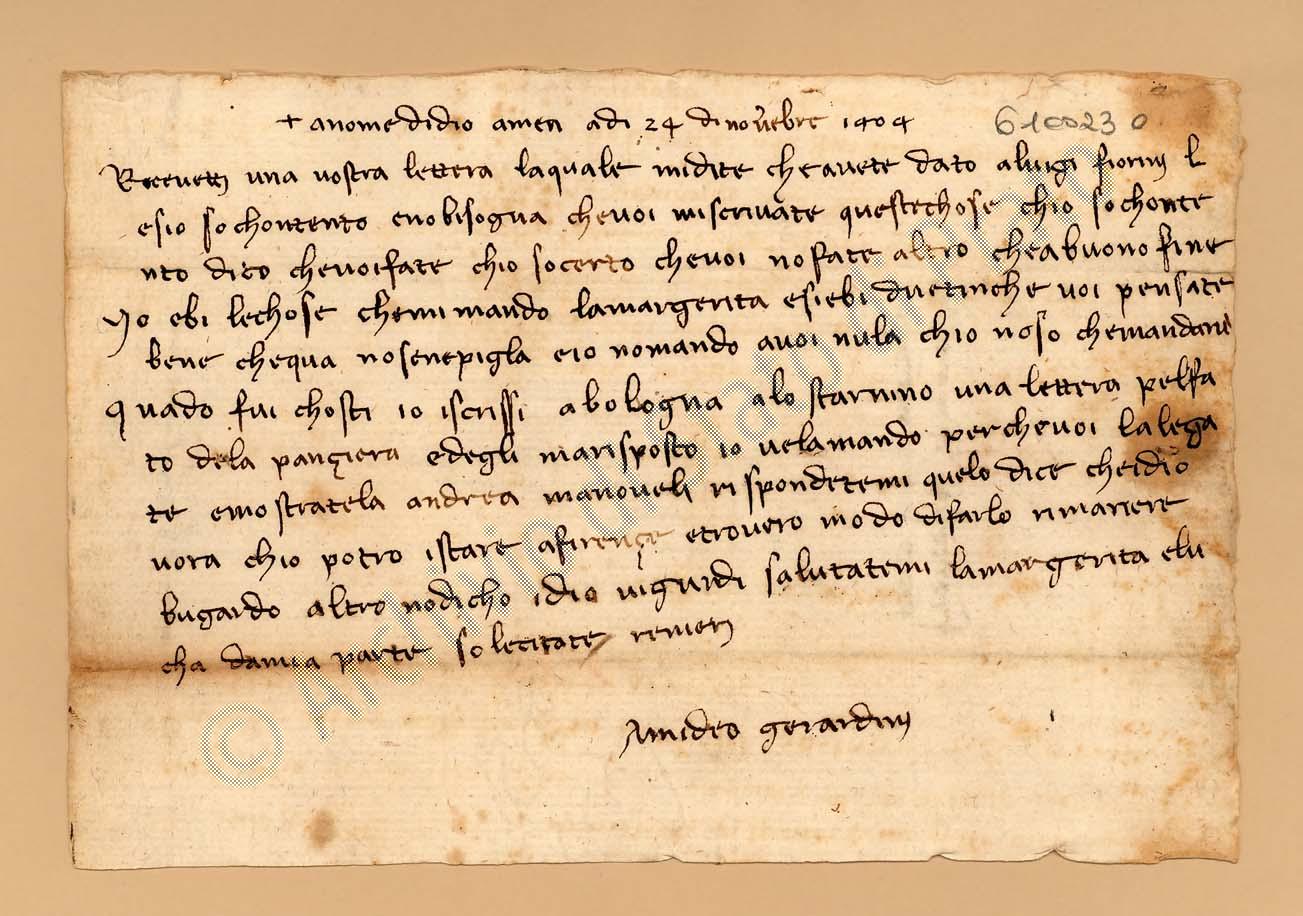 + anome didio amen adi 24 di novebre 1404
6100230
Recevetti una vostra lettera laquale midite cheavete dato aluigi fiorini
esio sochontento enobisogna chevoi miscrivate questechose chio sochonte
nto dico chevoifate chio socerto chevoi nofate altro cheabuono fine
Io ebi lechose chemi mando lamargerita esiebi duetinche voi pensate
bene chequa nosenepigla eio nomando avoi nula chio noso chemandarvi
Quado fui chosti io iscrissi abologna alo starnino una lettera pelfa
to dela pançiera edegli marisposto io velamando perchevoi lalega
te emostratela andrea manoveli rispondetemi quelo dice cheidio
vora chio potro istare afirençe etrovero modo difarlo rimanere
bugardo altro nodicho idio vigurdi salutatemi lamargerita elu
cha damia parte solecitate
Amideo gerardini
© Archivio di Stato di Prato